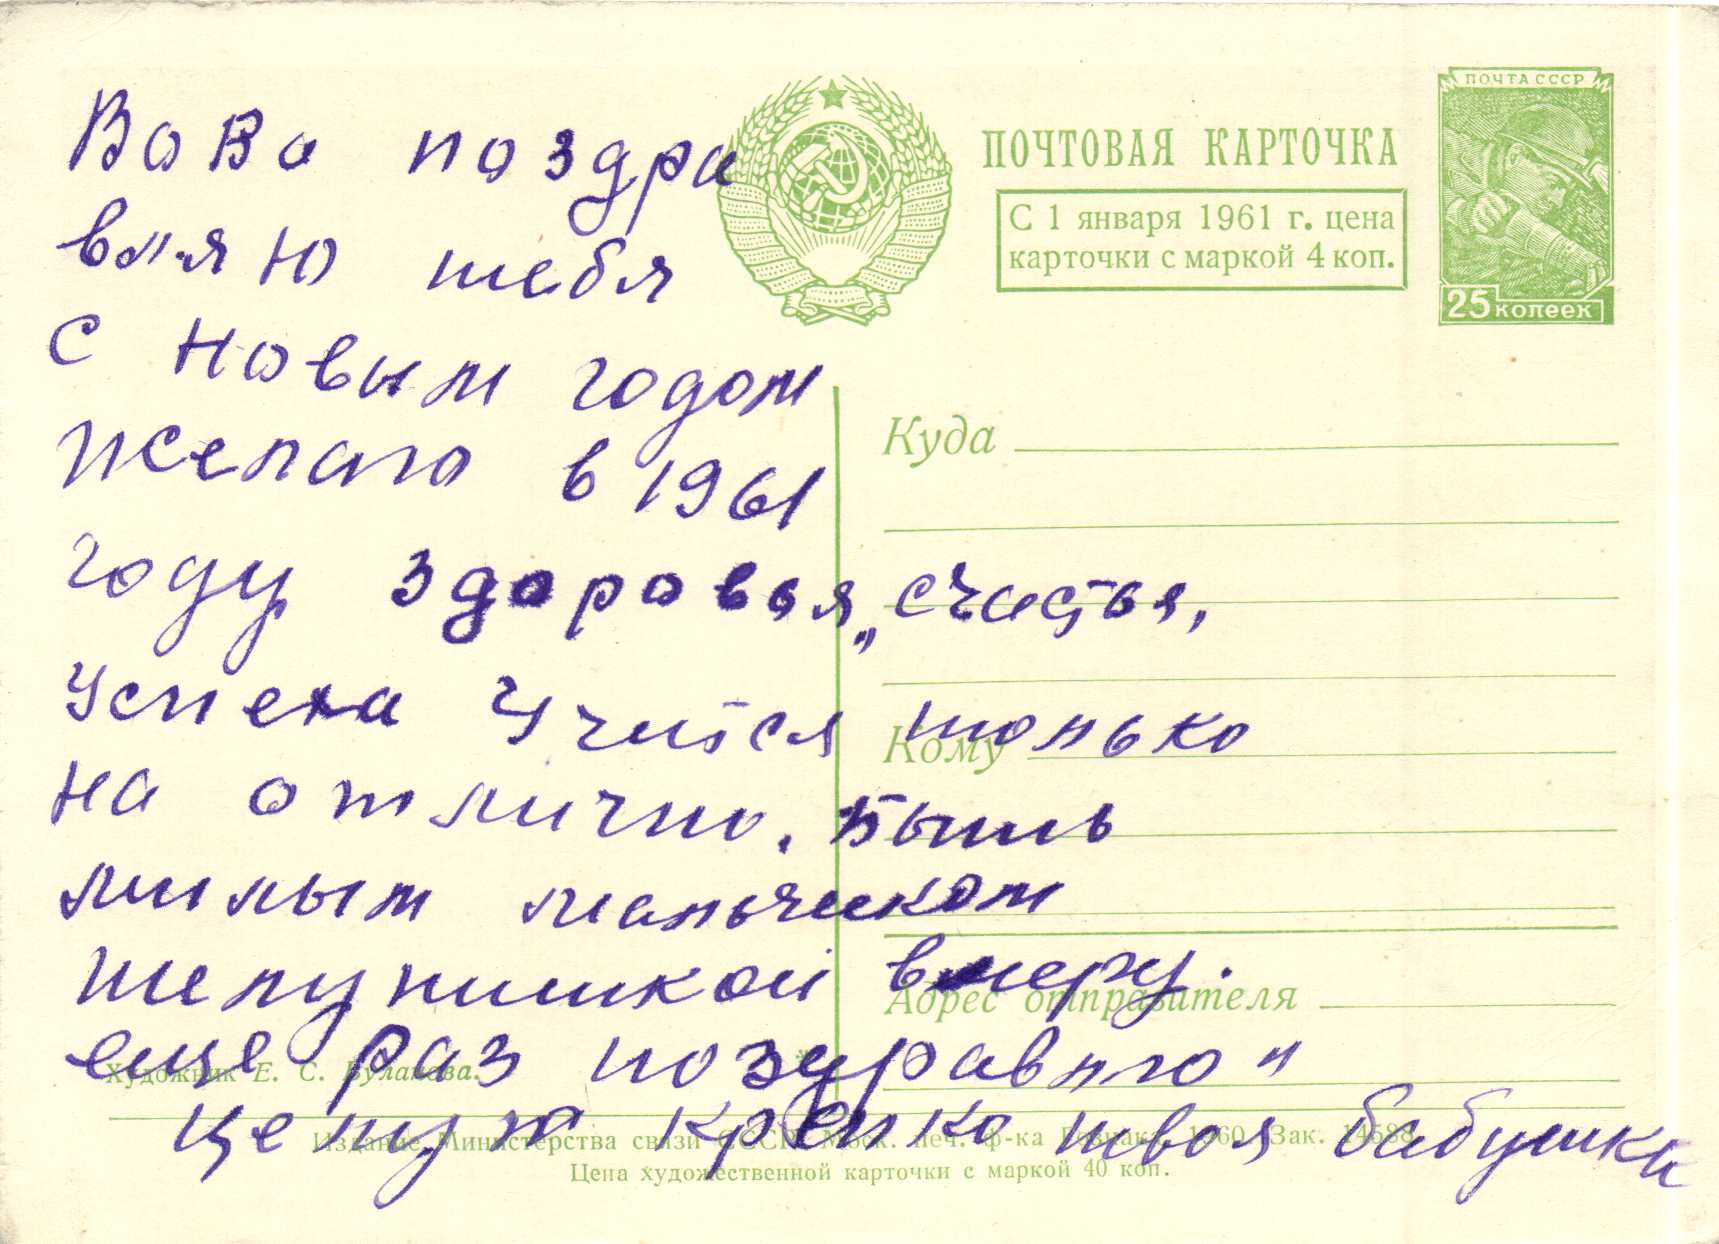 ПОЧТА СССР
25 копеек
ПОЧТОВАЯ КАРТОЧКА
С 1 января 1961 г. цена
карточки с маркой 4 коп.
Вова поздра
вляю тебя
с новым годом
Желаю в 1961
году здоровья, счастья,
Успеха Учится только
на отлично. Быть
милым мальчиком
шелунишкой в меру.
еще раз поздравляю и
целую крепко твоя бабушка
Куда
Кому
Адрес отправителя
Художник Е. С. Булакова.
Издание Министерства связи СССР. Моск. печ. ф-ка Гознака. 1960. Зак. 14588
Цена художественной карточки с маркой 40 коп.